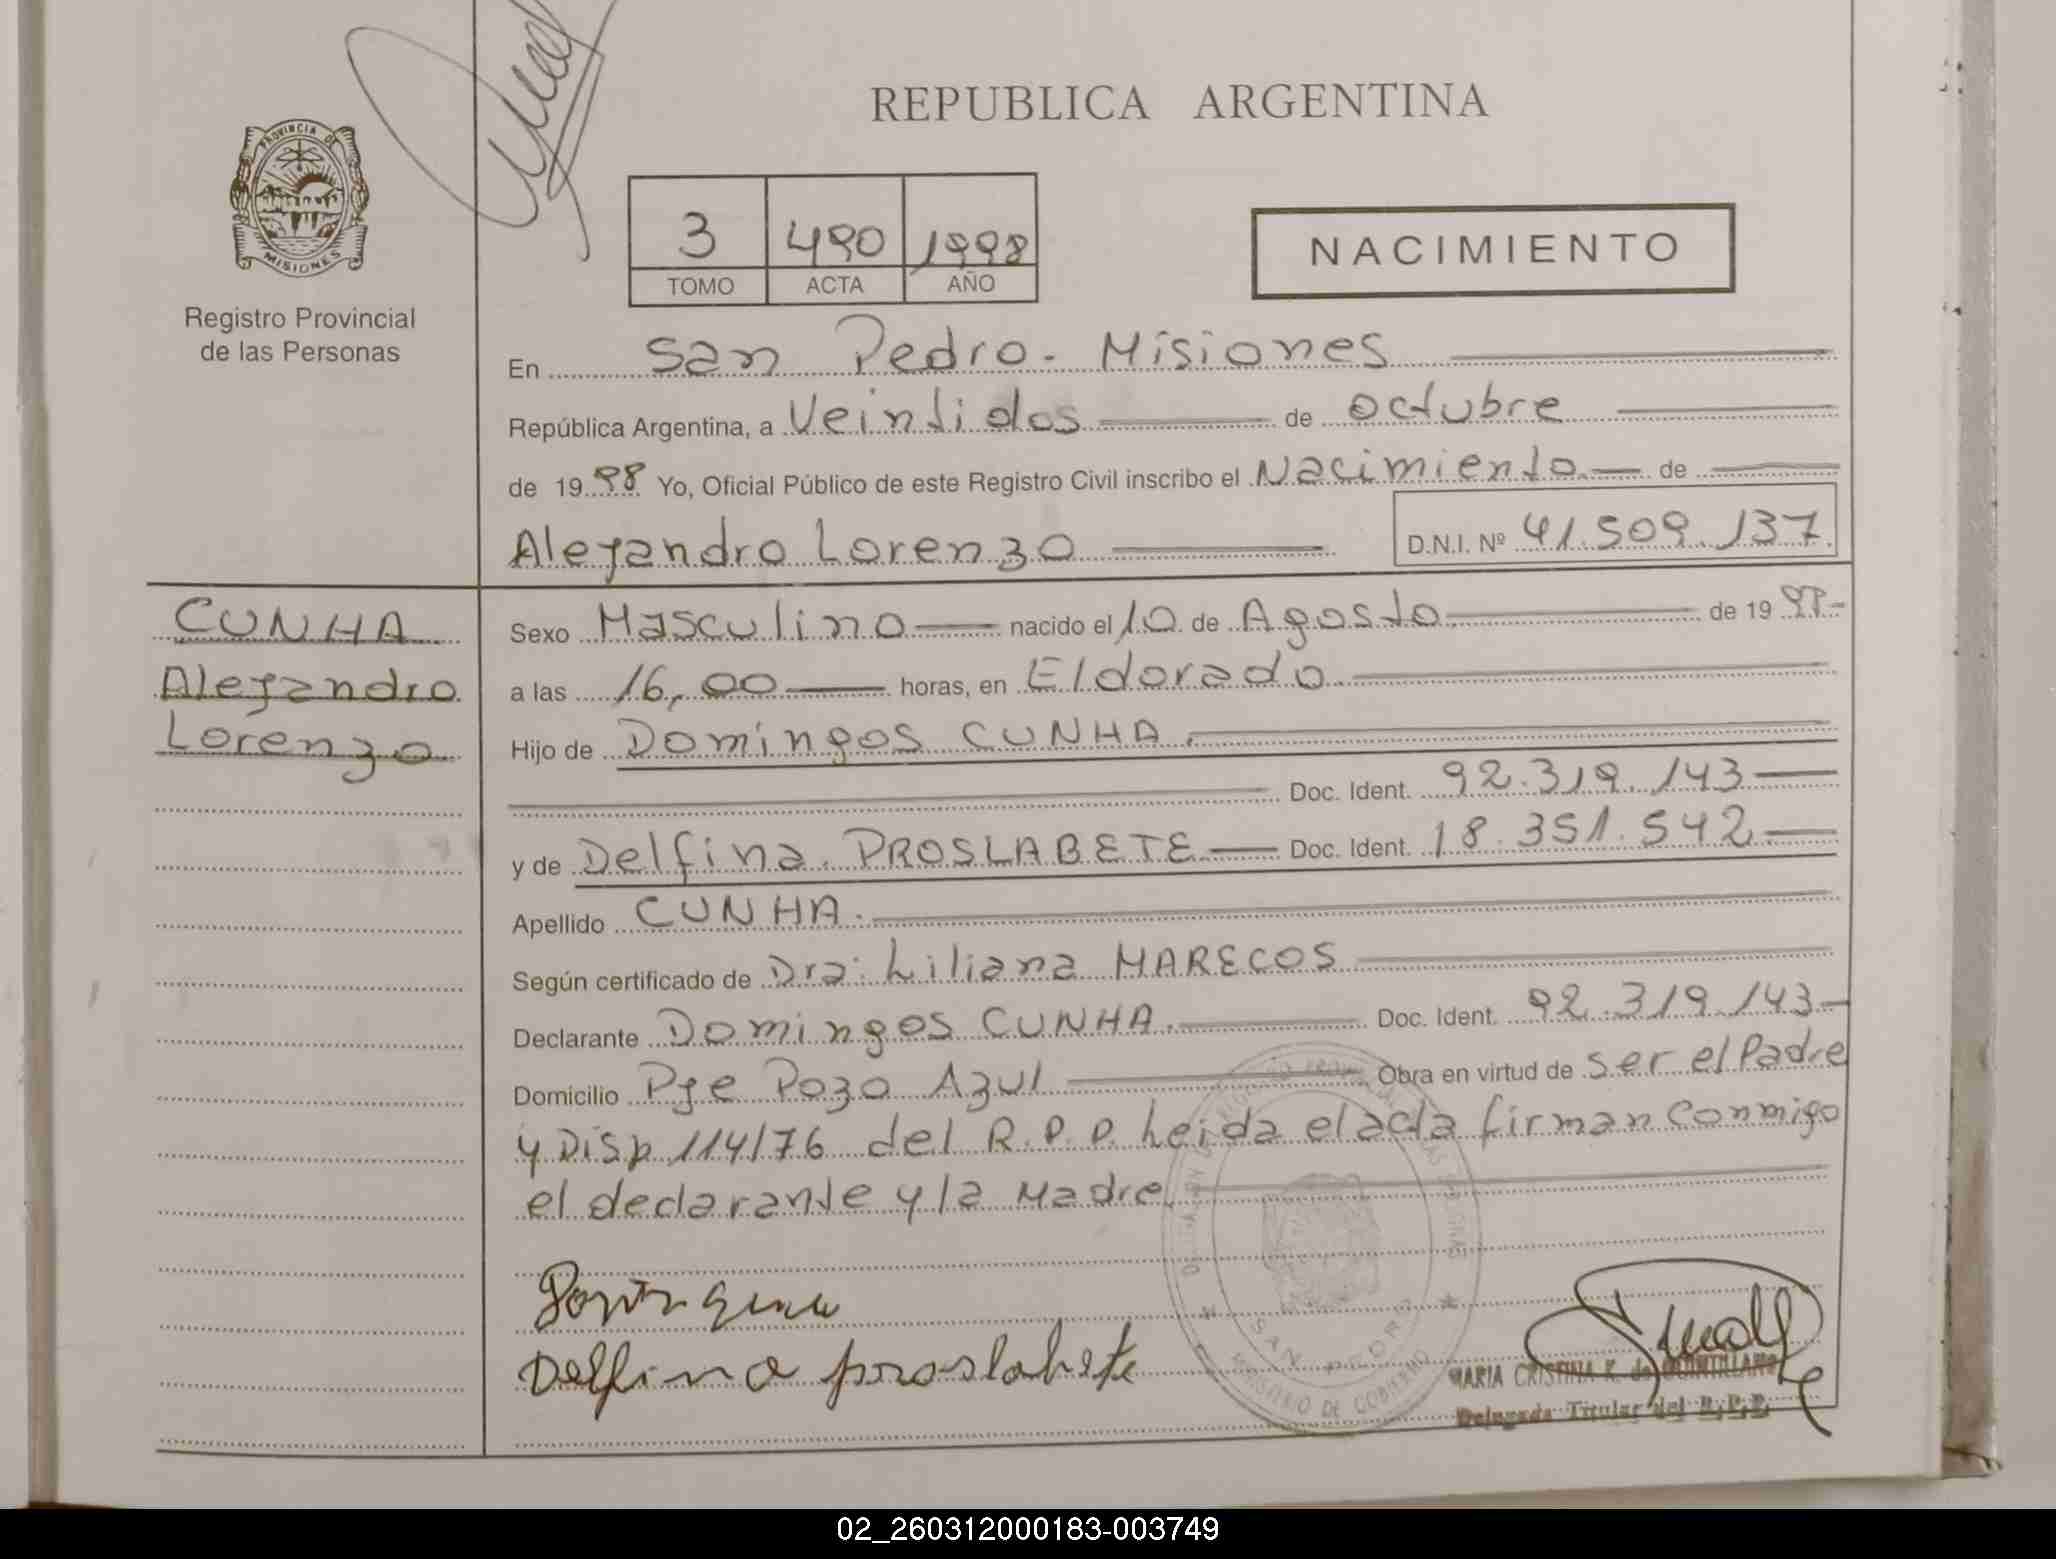 REPUBLICA ARGENTINA
PROVINCIA DE
MISIONES
Registro Provincial
de las Personas
3 490 1998
TOMO ACTA AÑO
NACIMIENTO
En San Pedro - Misiones
República Argentina, a Veintidos de octubre
de 1998 Yo, Oficial Público de este Registro Civil inscribo el Nacimiento de
Alejandro Lorenzo D.N.I. Nº 41.509.137
CUNHA
Alejandro
Lorenzo
Sexo Masculino nacido el 10 de Agosto de 1998
a las 16,00 horas, en Eldorado
Hijo de Domingos CUNHA
Doc. Ident. 92.319.143
y de Delfina PROSLABETE Doc. Ident. 18.351.542
Apellido CUNHA
Según certificado de Dra: Liliana MARECOS
Declarante Domingos CUNHA Doc. Ident. 92.319.143
Domicilio Pje Pozo Azul Obra en virtud de ser el Padre
y Disp 114/76 del R.P.P. Leida el acta firman conmigo
el declarante y la Madre
Delfina proslabete
SAN PEDRO
MINISTERIO DE GOBIERNO
MARIA CRISTINA K. de
Delegada Titular del R.P.P.
02_260312000183-003749